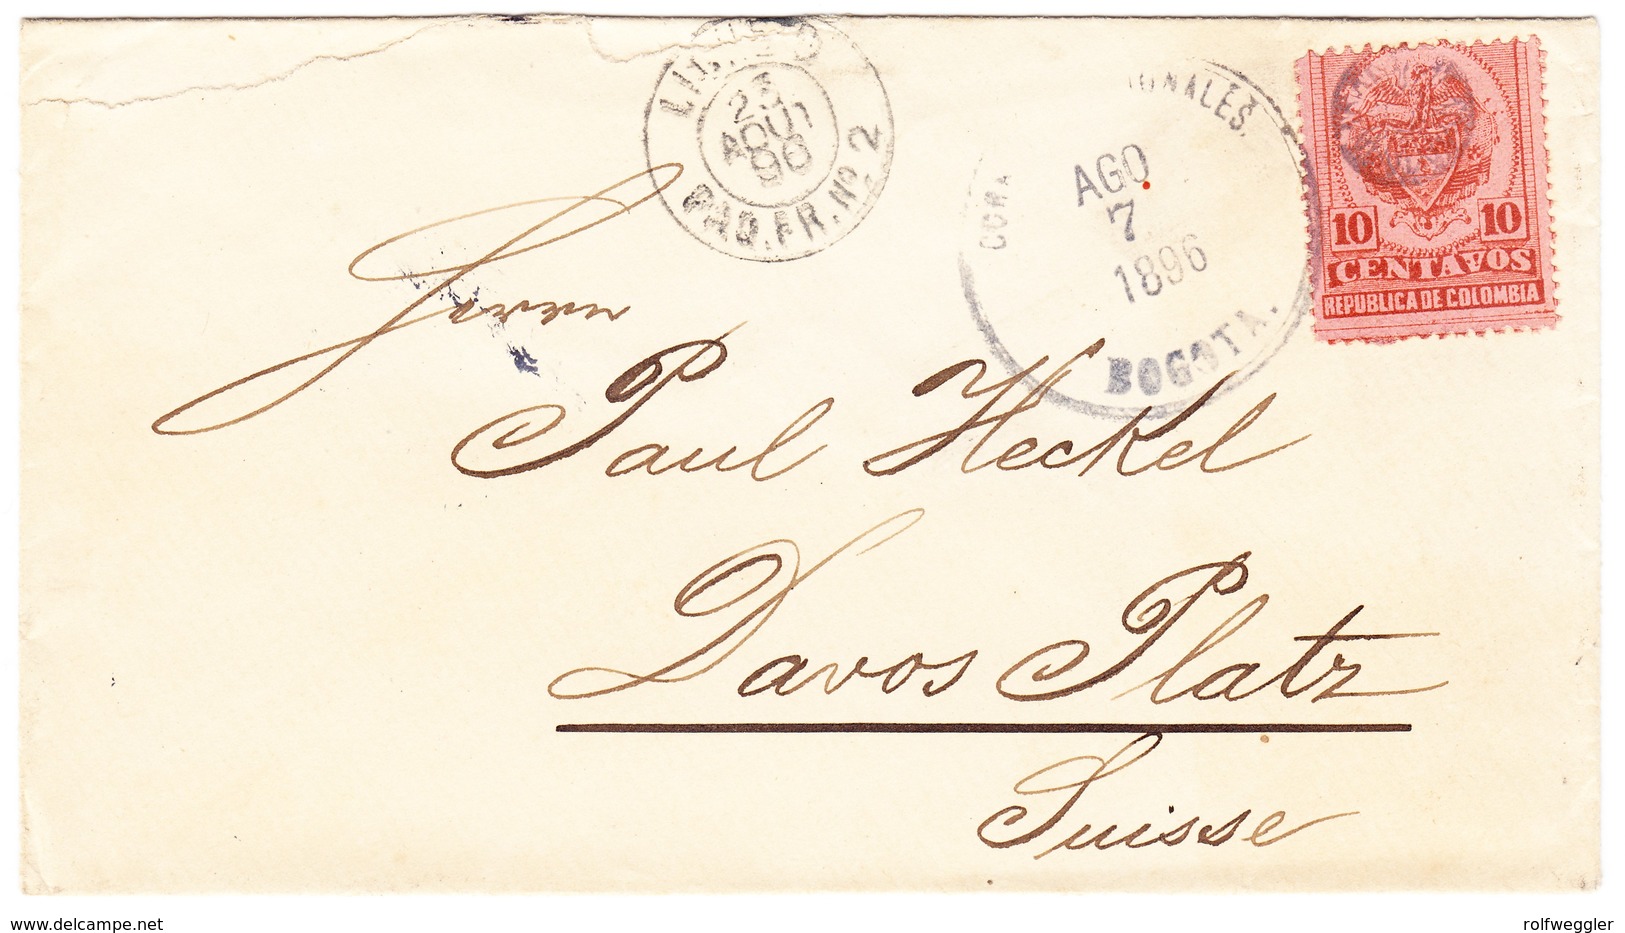 23
AOUT
96
PAQ.FR.Nº2
AGO
7
1896
BOGOTA.
10 10
CENTAVOS
REPUBLICA DE COLOMBIA
Herrn
Paul Heckel
Davos Platz
Suisse
delcampe.net
rolfweggler